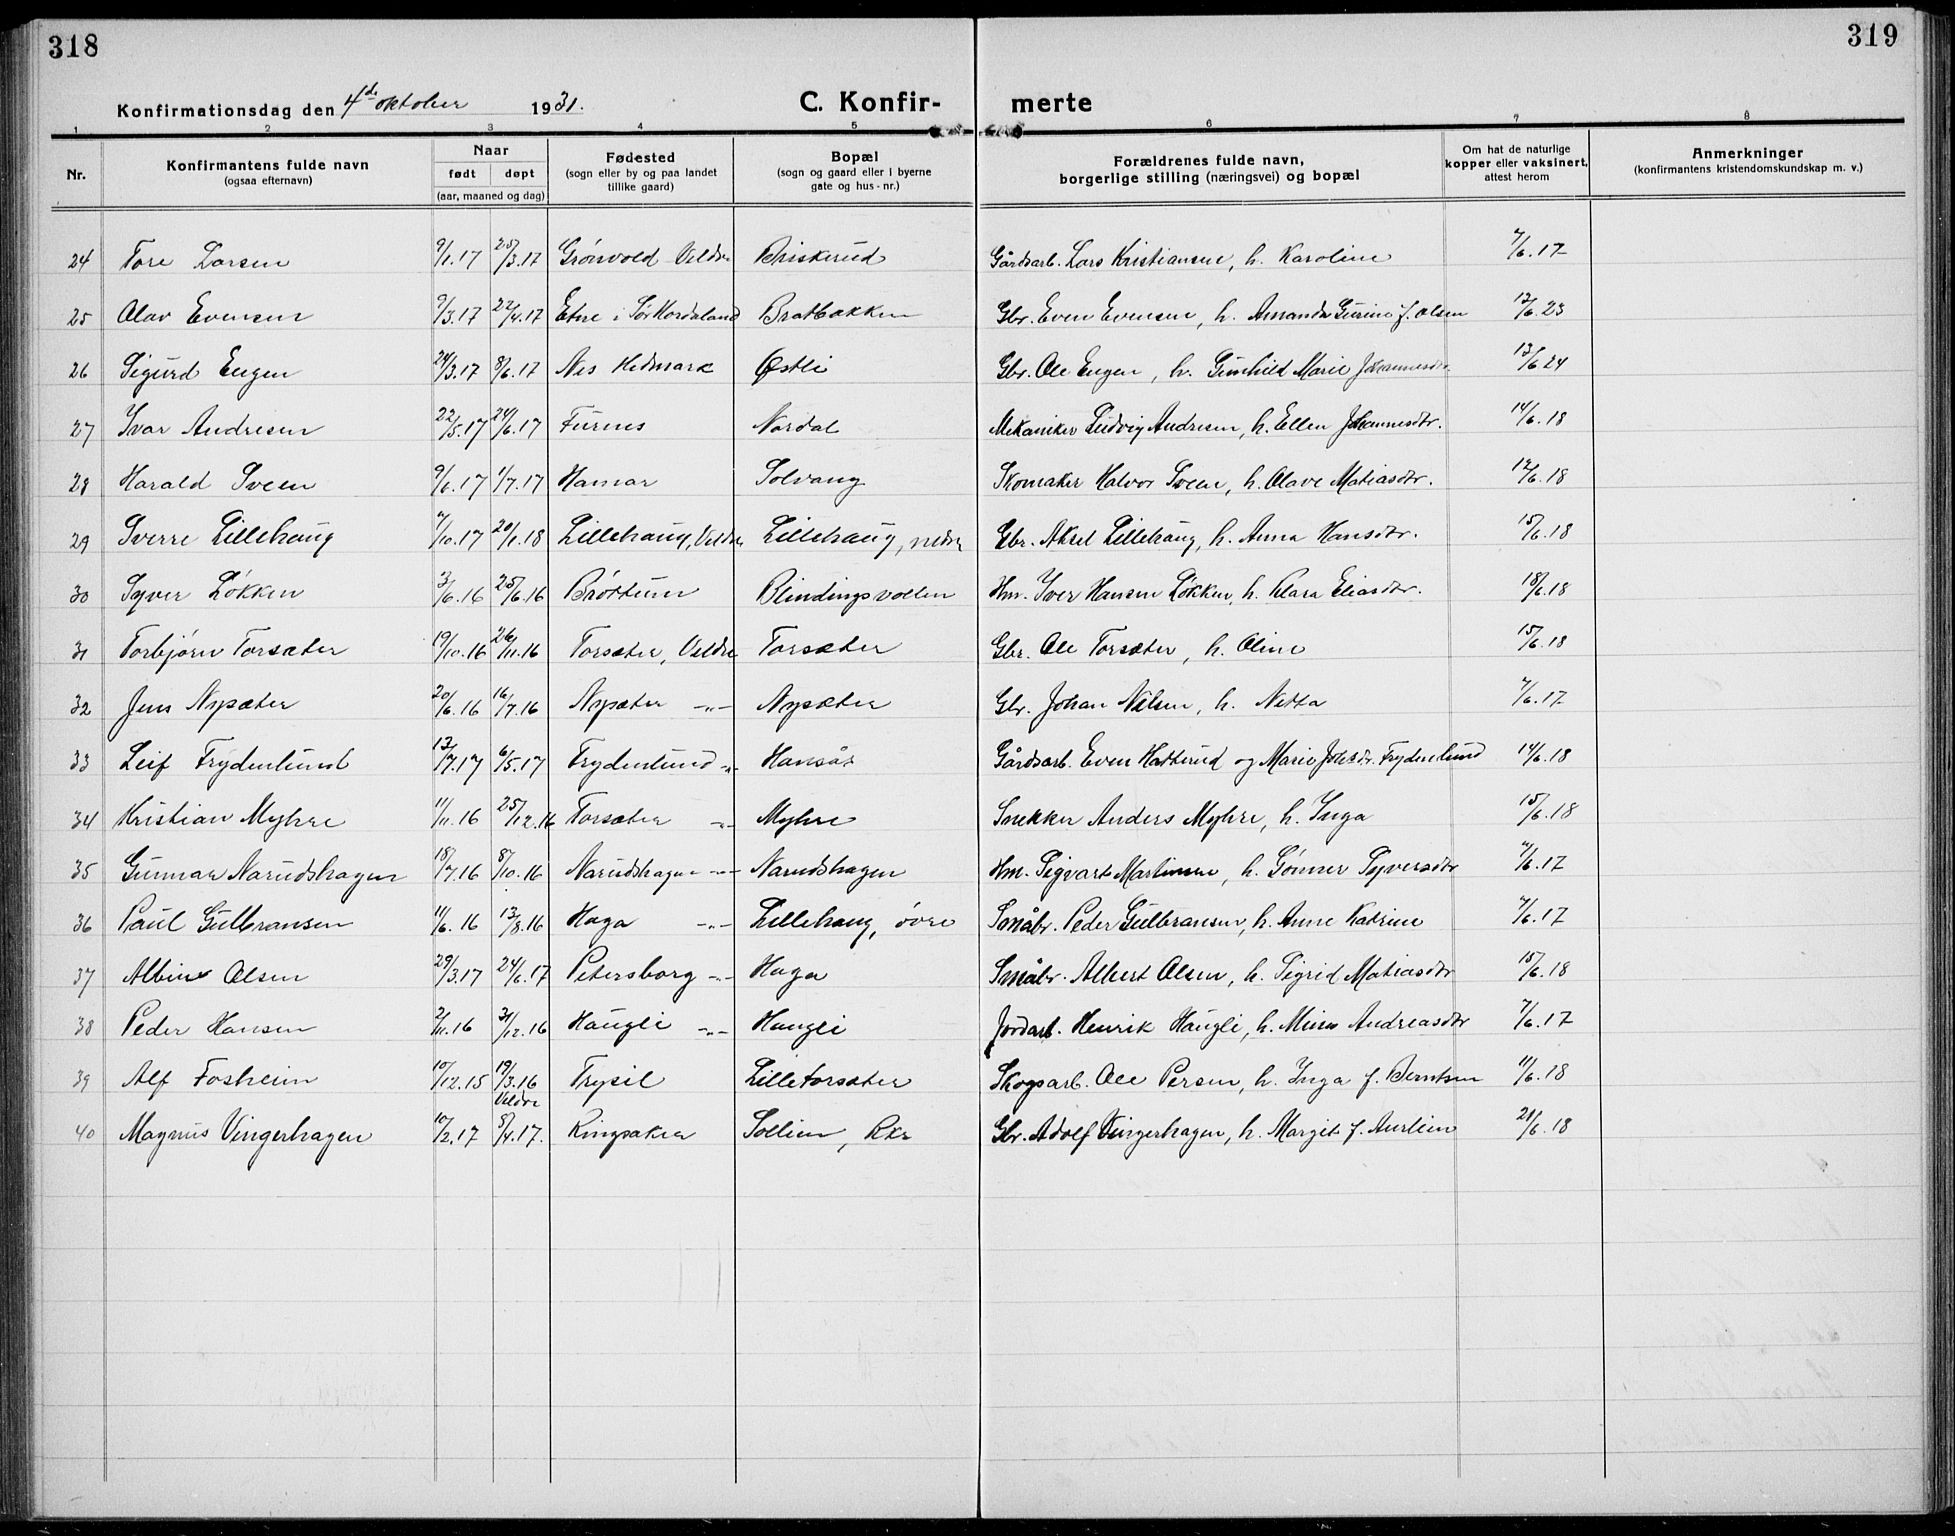 318
319
Konfirmationsdag den 4de oktober 1931.
C. Konfir-
merte
1 2 3 4 5 6 7 8
Nr. | Konfirmantens fulde navn (ogsaa efternavn) | Naar født døpt (aar, maaned og dag) | Fødested (sogn eller by og paa landet tillike gaard) | Bopæl (sogn og gaard eller i byerne gate og hus-nr.) | Forældrenes fulde navn, borgerlige stilling (næringsvei) og bopæl | Om hat de naturlige kopper eller vaksinert, attest herom | Anmerkninger (konfirmantens kristendomskundskap m. v.)
24 Tore Larsen 9/1.17 25/3.17 Grönvold Veldre Briskerud Gårdsarb. Lars Kristiansen, h. Karoline 7/6.17
25 Olav Evensen 9/3.17 22/4.17 Etne i Sør Hordaland Bratbakken Gbr. Even Evensen, h. Amanda Gurine f. Olsen 12/6.23
26 Sigurd Engen 24/3.17 8/6.17 Nes Hedmark Østli Gbr. Ole Engen, h. Gunhild Marie Johannesdr. 13/6 24
27 Ivar Andresen 22/5.17 24/6.17 Furnes Nordal Mekaniker Ludvig Andresen, h. Ellen Johannesdtr. 14/6.18
28 Harald Sveen 9/6.17 1/7.17 Hamar Solvang Skomaker Halvor Sveen, h. Olave Matiasdtr. 12/6.18
29 Sverre Lillehaug 7/10.17 20/1.18 Lillehaug, Veldre Lillehaug, nedre Gbr. Aksel Lillehaug, h. Anna Hansdtr. 15/6.18
30 Syver Løkken 3/6.16 25/6.16 Brøttum Blindingsvollen Hm. Iver Hansen Løkken, h. Klara Eliasdtr. 18/6.18
31 Torbjørn Torsæter 19/10.16 26/11.16 Torsæter, Veldre Torsæter Gbr. Ole Torsæter, h. Oline 15/6.18
32 Jens Nysæter 20/6.16 16/7.16 Nysæter -"- Nysæter Gbr. Johan Nilsen, h. Netta 7/6.17
33 Leif Frydenlund 13/7.17 6/5.17 Frydenlund -"- Hansås Gårdsarb. Even Hatterud og Marie Johsdr. Frydenlund 14/6.18
34 Kristian Myhre 11/11.16 25/12.16 Torsæter -"- Myhre Snekker Anders Myhre, h. Inga 15/6.18
35 Gunnar Narudshagen 18/7.16 8/10.16 Narudshagen -"- Narudshagen Hm. Sigvart Martinsen, h. Gønner Syversdtr 7/6.17
36 Paul Gulbransen 11/6.16 13/8.16 Haga -"- Lillehaug, övre Småbr. Peder Gulbransen, h. Anne Katrine 7/6.17
37 Albin Olsen 29/3.17 24/6.17 Petersborg -"- Haga Småbr. Albert Olsen, h. Sigrid Matiasdtr 15/6.18
38 Peder Hansen 2/11.16 31/12.16 Haugli -"- Haugli Jordarb. Henrik Haugli, h. Mina Andreasdtr 7/6.17
39 Alf Fosheim 10/12.15 19/3.16 Veldre Trysil Lilletorsæter Skogsarb. Ole Persen, h. Inga f. Berntsen 11/6.18
40 Magnus Vingerhagen 10/2.17 8/4.17. Ringsaker Sollien, Rkr Gbr. Adolf Vingerhagen, h. Margit f. Aurlien 21/6.18